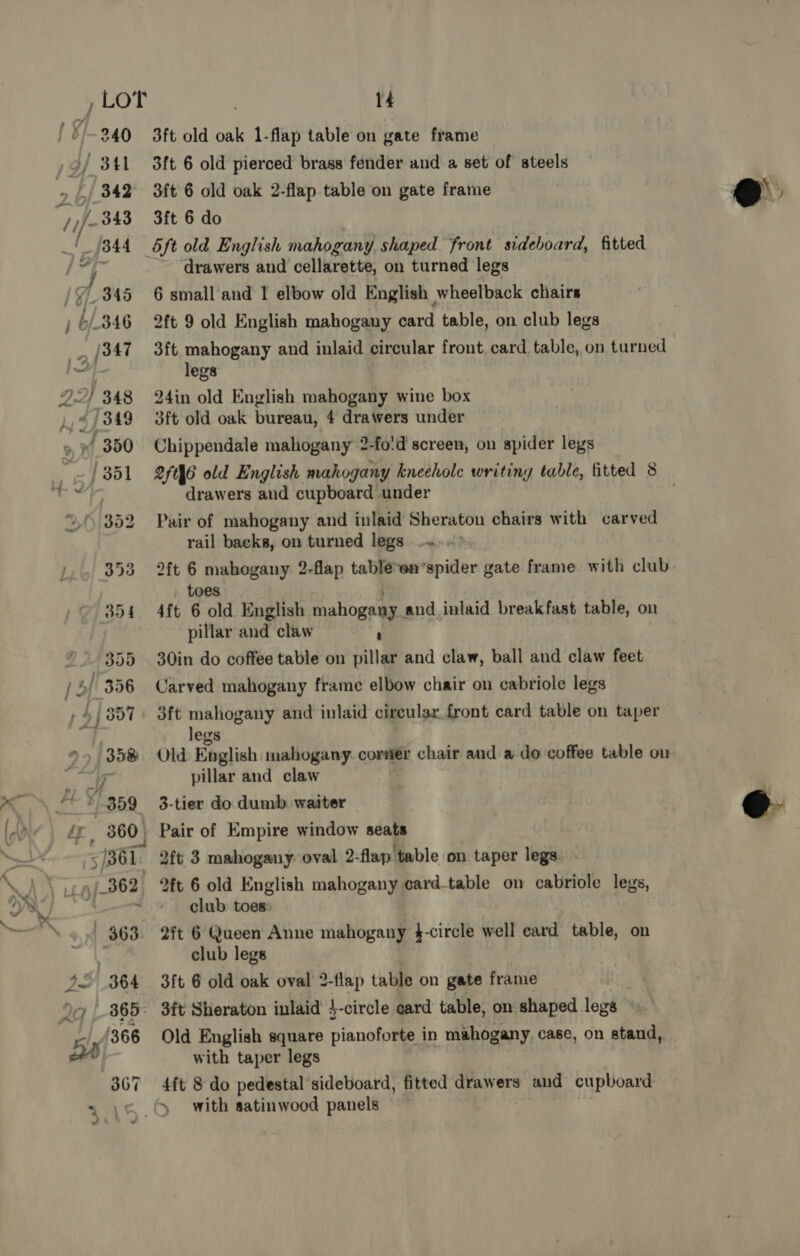 LOT 14
240 3ft old oak 1-flap table on gate frame
341 3ft 6 old pierced brass fender and a set of steels
342 3ft 6 old oak 2-flap table on gate frame
343 3ft 6 do
344 5ft old English mahogany shaped front sideboard, fitted
drawers and cellarette, on turned legs
345 6 small and 1 elbow old English wheelback chairs
346 2ft 9 old English mahogany card table, on club legs
347 3ft mahogany and inlaid circular front card table, on turned
legs
348 24in old English mahogany wine box
349 3ft old oak bureau, 4 drawers under
350 Chippendale mahogany 2-fold screen, on spider legs
351 2ft 6 old English mahogany kneehole writing table, fitted 8
drawers and cupboard under
352 Pair of mahogany and inlaid Sheraton chairs with carved
rail backs, on turned legs
353 2ft 6 mahogany 2-flap table on spider gate frame with club
toes
354 4ft 6 old English mahogany and inlaid breakfast table, on
pillar and claw
355 30in do coffee table on pillar and claw, ball and claw feet
356 Carved mahogany frame elbow chair on cabriole legs
357 3ft mahogany and inlaid circular front card table on taper
legs
358 Old English mahogany corner chair and a do coffee table on
pillar and claw
359 3-tier do dumb waiter
360 Pair of Empire window seats
361 2ft 3 mahogany oval 2-flap table on taper legs
362 2ft 6 old English mahogany card table on cabriole legs,
club toes
363 2ft 6 Queen Anne mahogany ½-circle well card table, on
club legs
364 3ft 6 old oak oval 2-flap table on gate frame
365 3ft Sheraton inlaid ½-circle card table, on shaped legs
366 Old English square pianoforte in mahogany case, on stand,
with taper legs
367 4ft 8 do pedestal sideboard, fitted drawers and cupboard
with satinwood panels